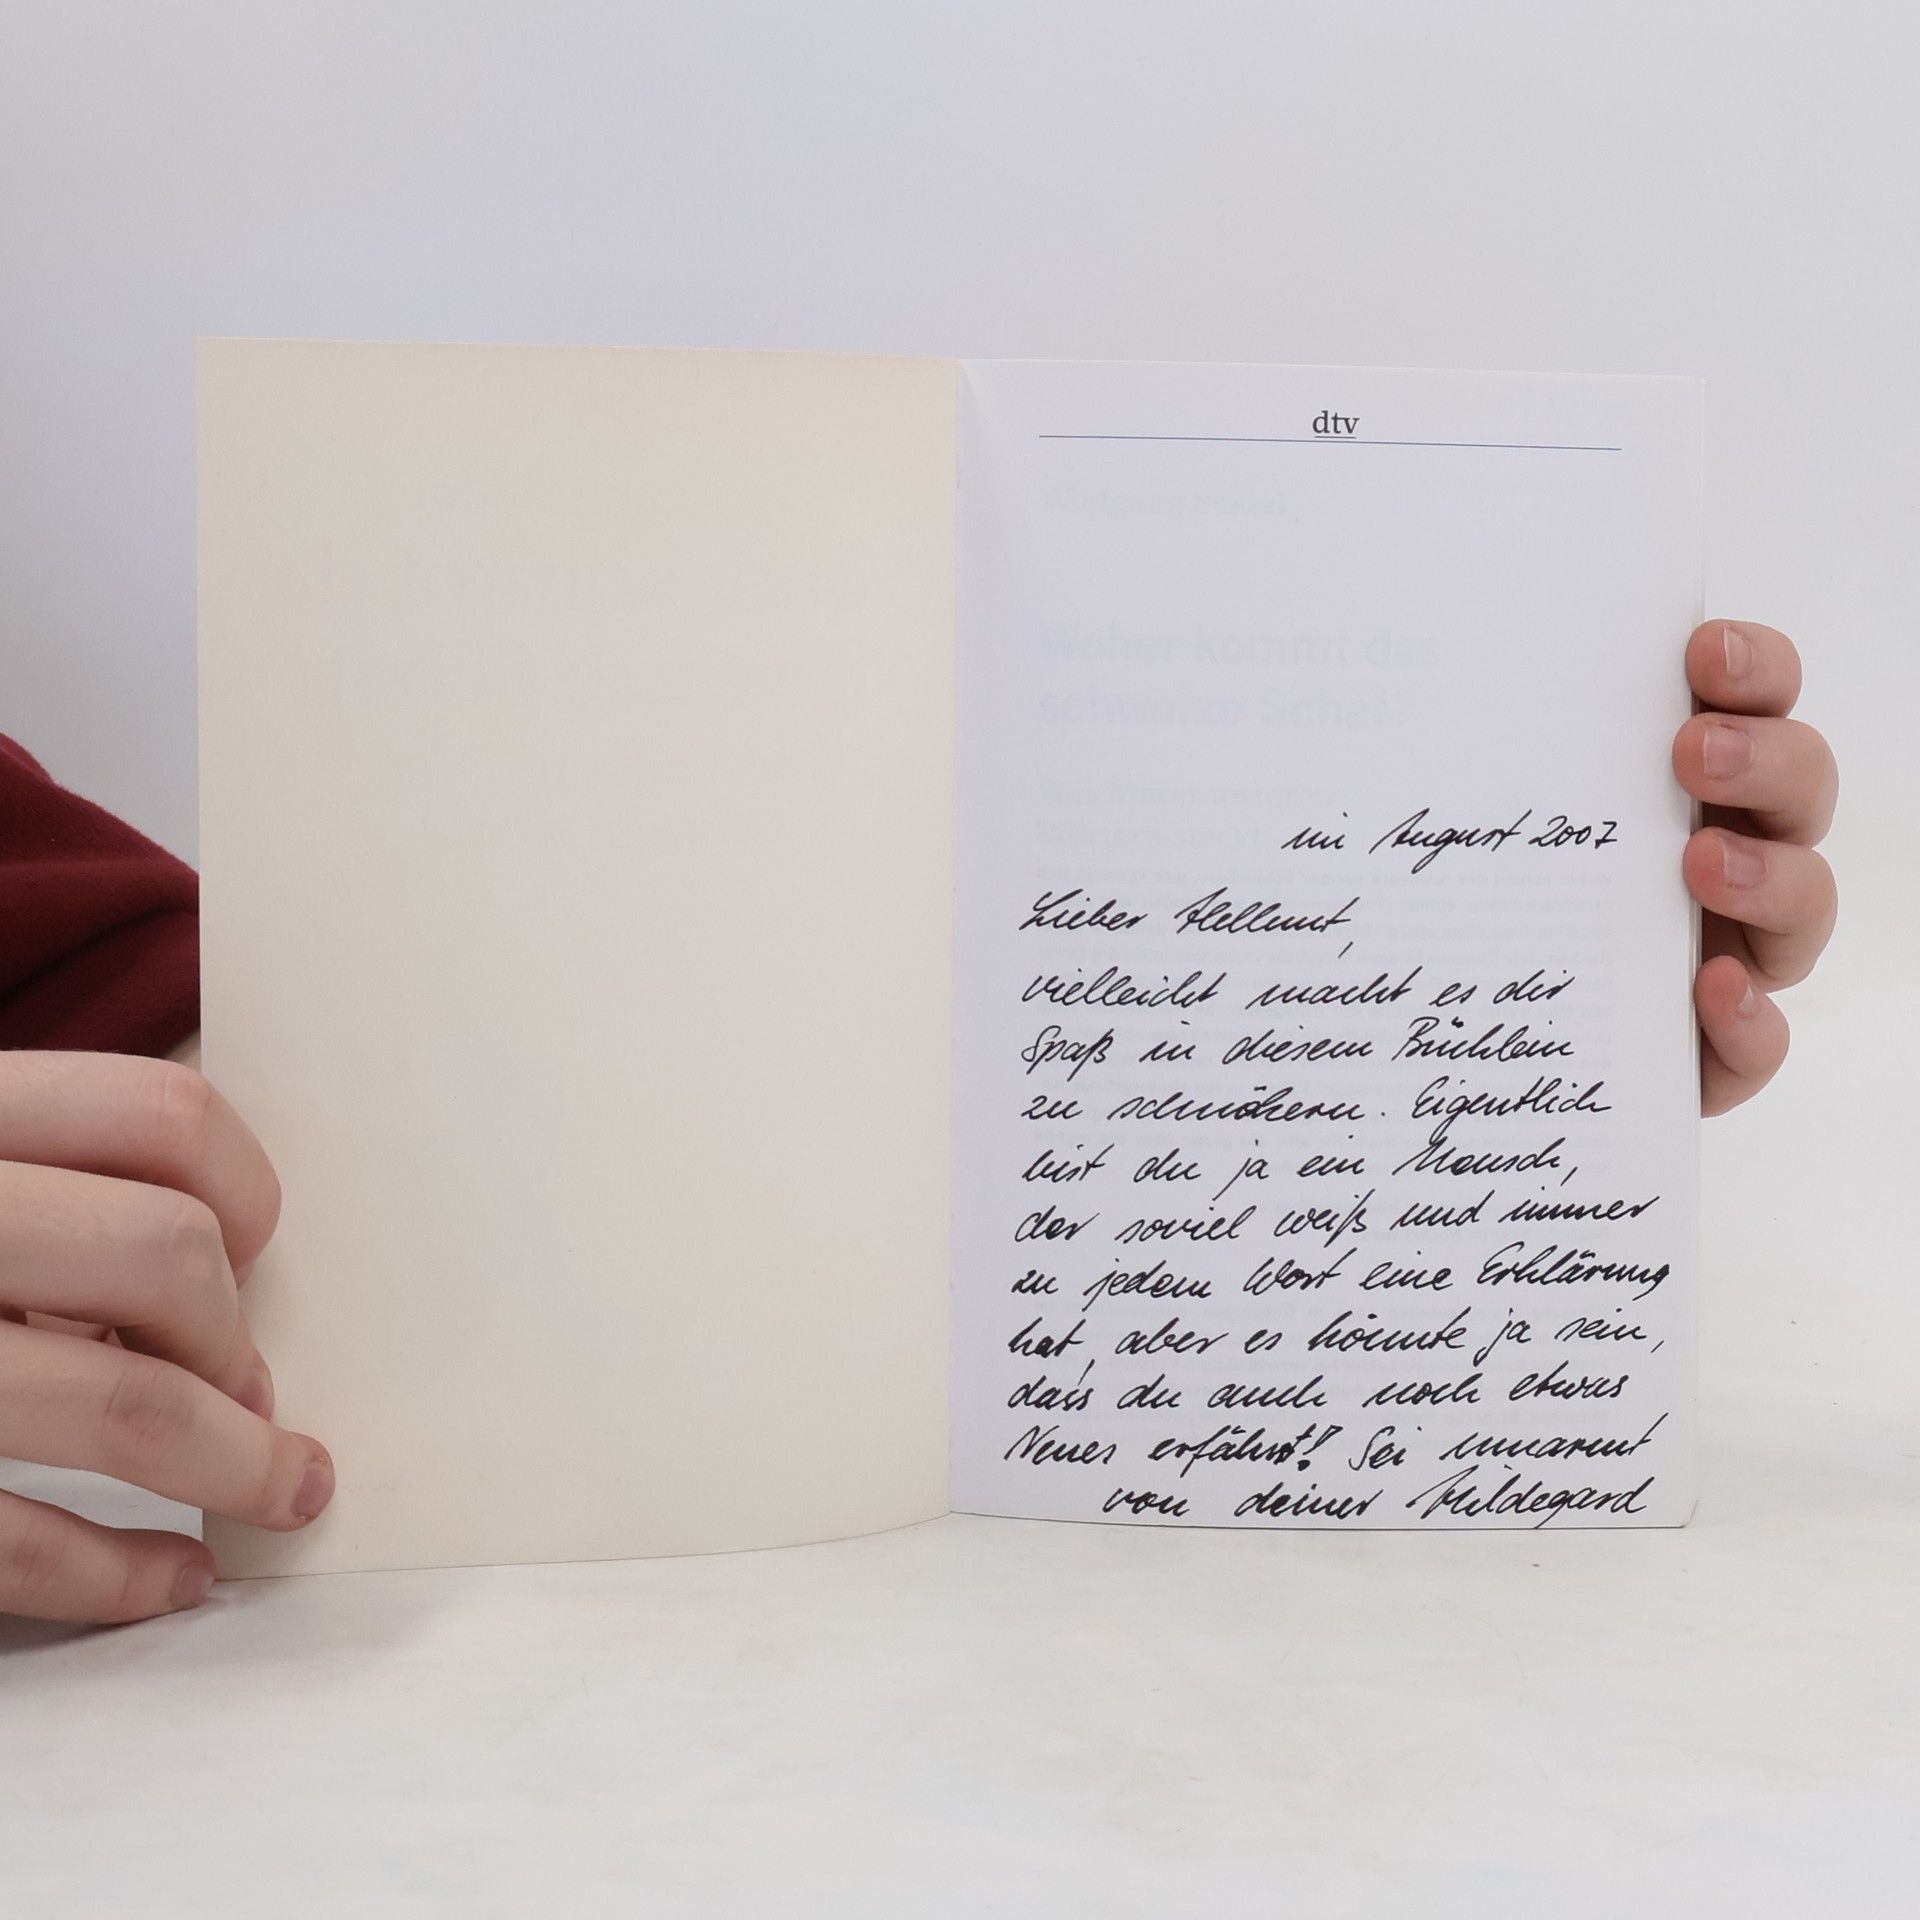 dtv
Woher kommt das
schwarze Schaf?
im August 2007
Lieber Hellmut,
vielleicht macht es dir
Spaß in diesem Büchlein
zu schmökern. Eigentlich
bist du ja ein Mensch,
der soviel weiß und immer
zu jedem Wort eine Erklärung
hat, aber es könnte ja sein,
dass du auch noch etwas
Neues erfährst! Sei umarmt
von deiner Hildegard